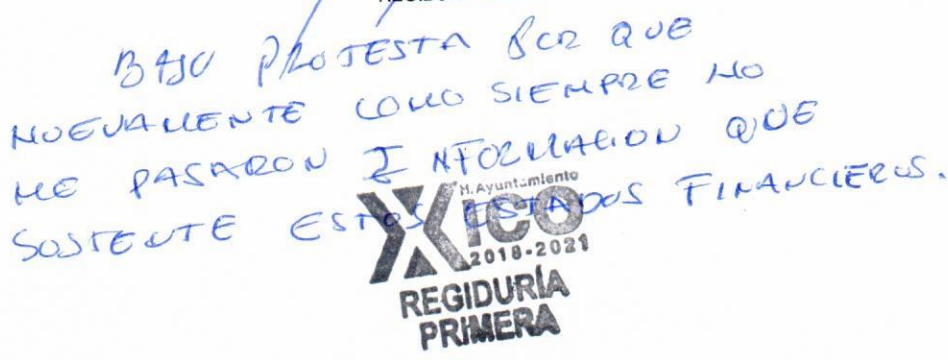 BAJO PROTESTA POR QUE
NUEVAMENTE COMO SIEMPRE NO
ME PASARON INFORMACION QUE
SUSTENTE ESTOS ESTADOS FINANCIEROS.
H. Ayuntamiento
XICO
2018-2021
REGIDURÍA
PRIMERA